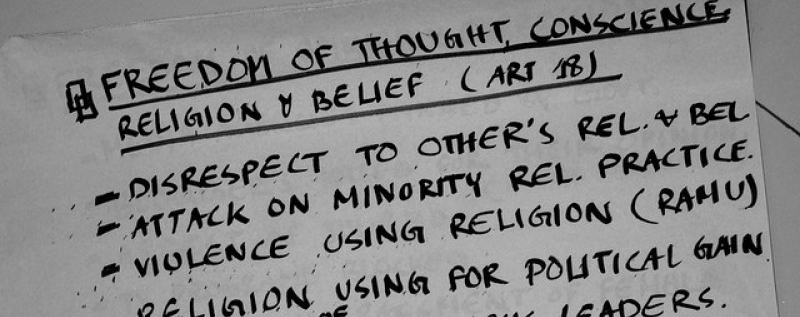 FREEDOM OF THOUGHT, CONSCIENCE,
RELIGION & BELIEF (ART 18)
- DISRESPECT TO OTHER'S REL. & BEL
- ATTACK ON MINORITY REL. PRACTICE.
- VIOLENCE USING RELIGION (RAMU)
RELIGION USING FOR POLITICAL GAIN
LEADERS.